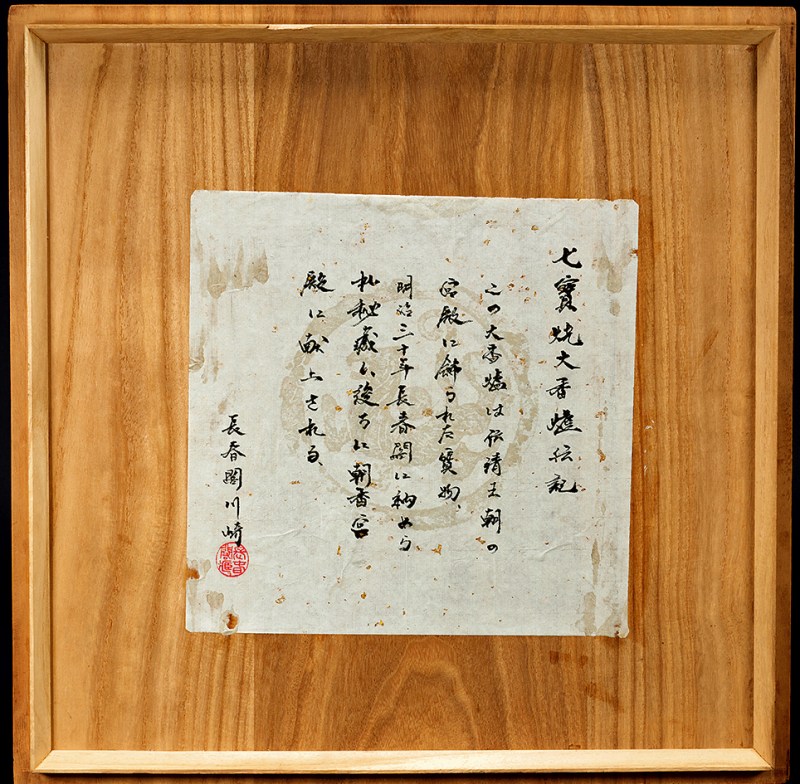 七寶焼大香爐伝記
この大香爐は伝清王朝の
宮殿に飾られた寳物、
明治三十年長春閣に納めら
れ秘蔵の後ちに朝香宮
殿に献上される、
長春閣川崎